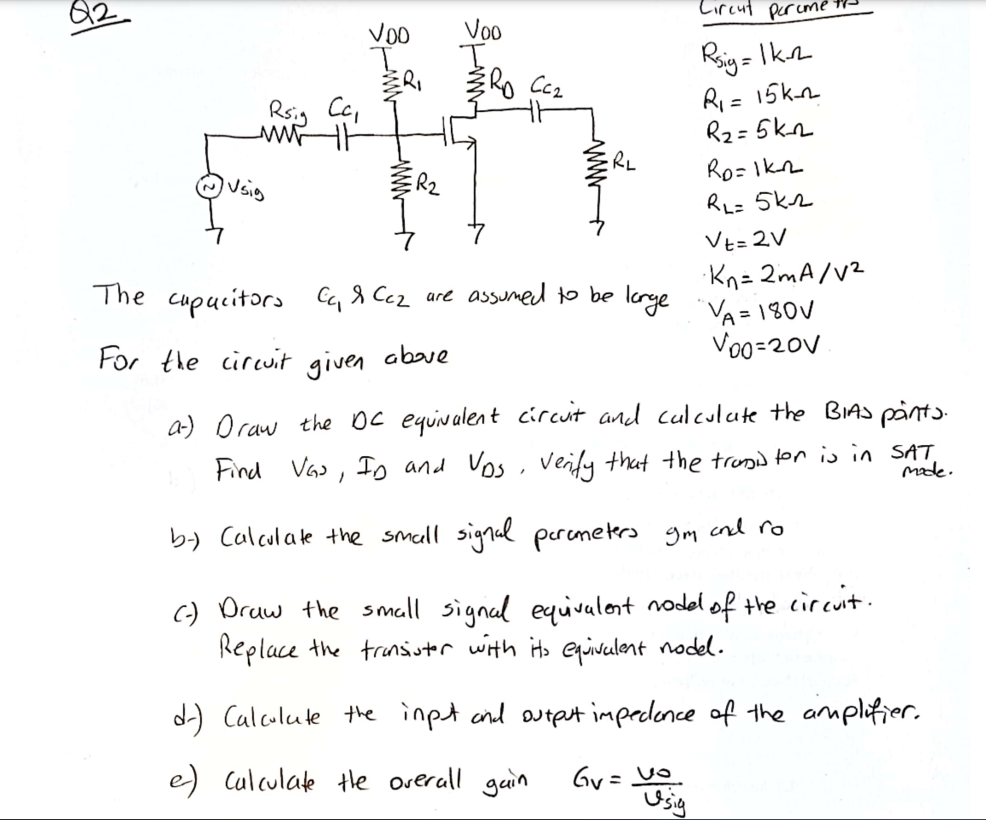 Q2
Circuit
VDD
VDD
R1
RD
CC2
Rsig
CC1
RL
R2
Vsig
Rsig = 1kΩ
R1 = 15kΩ
R2 = 5kΩ
RD = 1kΩ
RL = 5kΩ
Vt = 2V
Kn = 2mA/V²
VA = 180V
VDD = 20V
The capacitors CC1 & CC2 are assumed to be large
For the circuit given above
a-) Draw the DC equivalent circuit and calculate the BIAS points.
Find VGS, ID and VDS. Verify that the transistor is in SAT
mode.
b-) Calculate the small signal parameters gm and ro
c-) Draw the small signal equivalent model of the circuit.
Replace the transistor with its equivalent model.
d-) Calculate the input and output impedance of the amplifier.
e-) Calculate the overall gain Gv = vo
vsig